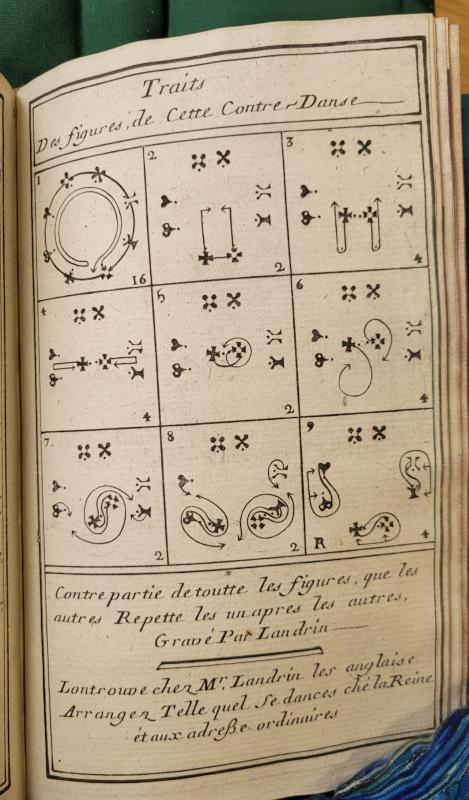 Traits
Des figures, de Cette Contre-Danse
1
2
3
16
2
4
4
5
6
4
2
4
7
8
9
2
2
R
4
Contre partie de toutte les figures, que les
autres Repette les un apres les autres,
Gravé Par Landrin
Lontrouve chez Mr. Landrin les anglaise
Arrangez Telle quel Se dances ché la Reine
et aux adreße ordinaires